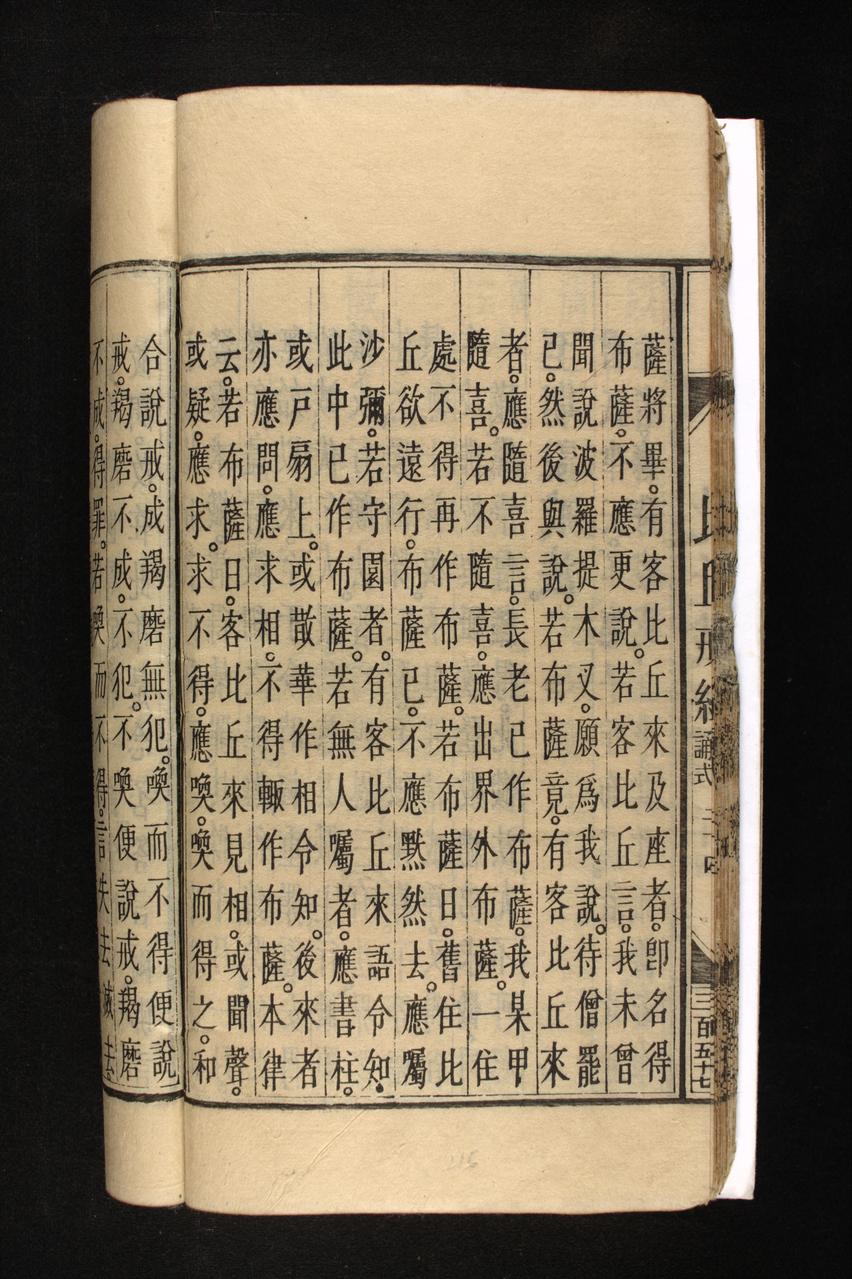 薩將畢。有客比丘來及座者。卽名得
布薩。不應更說。若客比丘言。我未曾
聞說波羅提木叉。願爲我說。待僧罷
已。然後與說。若布薩竟。有客比丘來
者。應隨喜言。長老已作布薩。我某甲
隨喜。若不隨喜。應出界外布薩。一住
處不得再作布薩。若布薩日。舊住比
丘欲遠行。布薩已。不應默然去。應囑
沙彌。若守園者。有客比丘來語令知。
此中已作布薩。若無人囑者。應書柱。
或戸扇上。或散華作相令知。後來者
亦應問。應求相。不得輙作布薩。本律
云。若布薩日。客比丘來見相。或聞聲。
或疑。應求。求不得。應喚。喚而得之。和
合說戒。成羯磨無犯。喚而不得便說
戒。羯磨不成。不犯。不喚便說戒。羯磨
不成。得罪。若喚而不得。言失去滅去
誦式
三百五十七